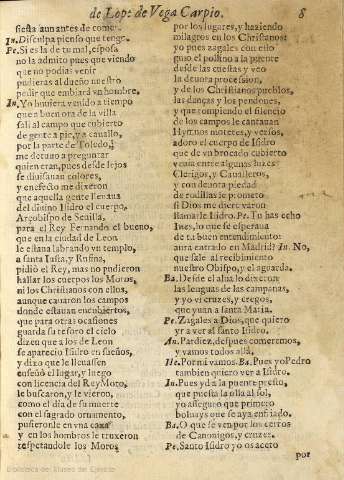 de Lope de Vega Carpio. 8
siesta aun antes de comer.
In. Disculpa pienso que tengo.
Pe. Si es la de tu mal, esposa
no la admito pues que viendo
que no podias venir
pudieras al dueño nuestro
pedir que embiara vn hombre.
In. Yo huuiera venido a tiempo
que a buen ora de la villa
sali al campo que cubierto
de gente a pie, y a cauallo,
por la parte de Toledo,
me detuuo a preguntar
quien eran, pues desde lejos
se diuisauan colores,
y en efecto me dixeron
que aquella gente lleuaua
del diuino Isidro el cuerpo,
Arçobispo de Seuilla,
para el Rey Fernando el bueno,
que en la ciudad de Leon
le estaua labrando vn templo,
a santa Iusta, y Rufina,
pidiò el Rey, mas no pudieron
hallar los cuerpos los Moros,
ni los Christianos con ellos,
aunque cauaron los campos
donde estauan encubiertos,
que para otras ocasiones
guarda su tesoro el cielo
dizen que a los de Leon
se aparecio Isidro en sueños,
y dixo que le lleuassen
enseñò el lugar, y luego
con licencia del Rey Moro,
le buscaron, y le vieron,
como el dia de su muerte
con el sagrado ornamento,
pusieronle en vna caxa
y en los hombros le truxeron
respetandole los Moros
por los lugares, y haziendo
milagros en los Christianos:
yo pues zagales con ello
guio el possino a la puente
desde las cuestas y veo
la deuota procession,
y de los Christianos pueblos,
las danças y los pendones,
y que rompiendo el silencio
de los campos le cantauan
Hymnos motetes, y versos,
adoro el cuerpo de Isidro
que de vn brocado cubierto
venia entre algunas luzes
Clerigos, y Caualleros,
y con deuota piedad
de rodillas le prometo
si Dios me diere varon
llamarle Isidro. Pe. Tu has echo
Ines, lo que se esperaua
de tu buen entendimiento:
aurà entrado en Madrid? In. No,
que sale al recibimiento
nuestro Obispo, y el aguarda.
Ba. Desde el alua lo dixeron
las lenguas de las campanas,
y yo vi cruzes, y cregos,
que yuan a santa Maria.
Pe. Zagales a Dios, que quiero
yr a ver al santo Isidro.
An. Pardiez, despues comeremos,
y vamos todos allà,
Il. Por mi vamos. Ba. Pues yo Pedro
tambien quiero ver a Isidro.
In. Pues yd a la puente presto,
que puesta la olla al sol,
yo asseguro que primero
boluays que se aya enfriado.
Ba. O que se ven por los cerros
de Canonigos, y cruzes.
Pe. Santo Isidro yo os acero
por
Biblioteca del Museo del Ejército